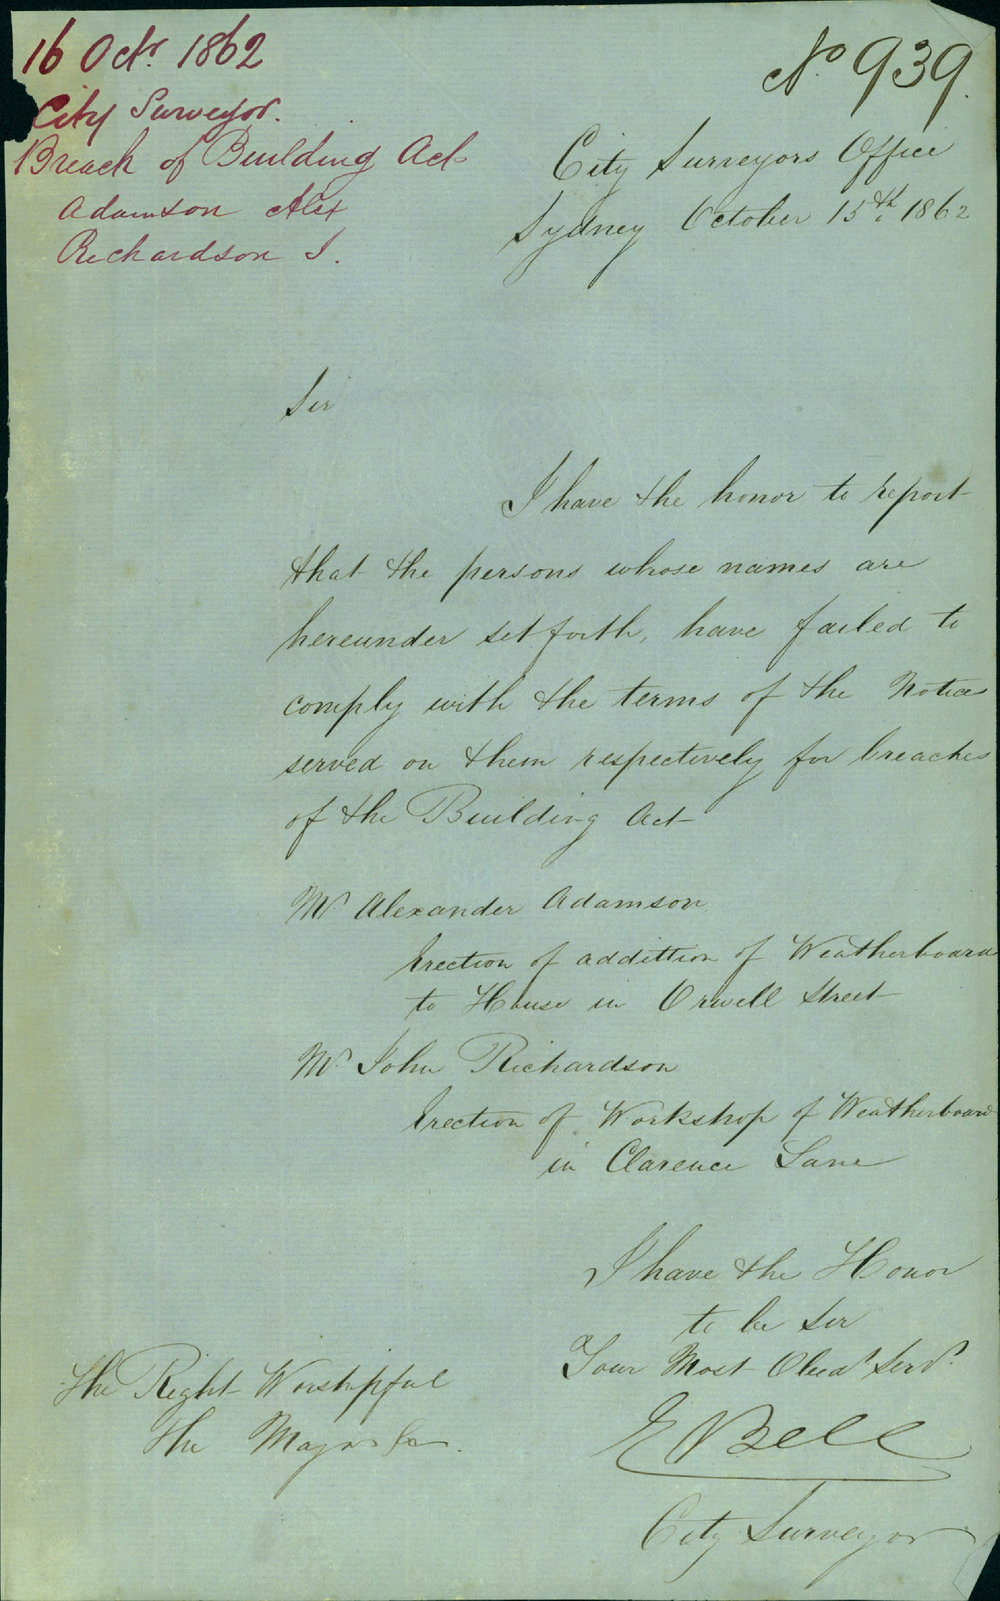 16 Octr. 1862
City Surveyor.
Breach of Building Act
Adamson Alex
Richardson J.
No. 939.
City Surveyors Office
Sydney October 15th. 1862
Sir
I have the honor to report
that the persons whose names are
hereunder set forth, have failed to
comply with the terms of the Notices
served on them respectively for breaches
of the Building Act
Mr Alexander Adamson
Erection of addittion of Weatherboard
to House in Orwell Street
Mr John Richardson
Erection of Workshop of Weatherboard
in Clarence Lane
I have the Honor
to be Sir
Your Most Obedt. Servt.
E Bell
City Surveyor
The Right Worshipful
The Mayor